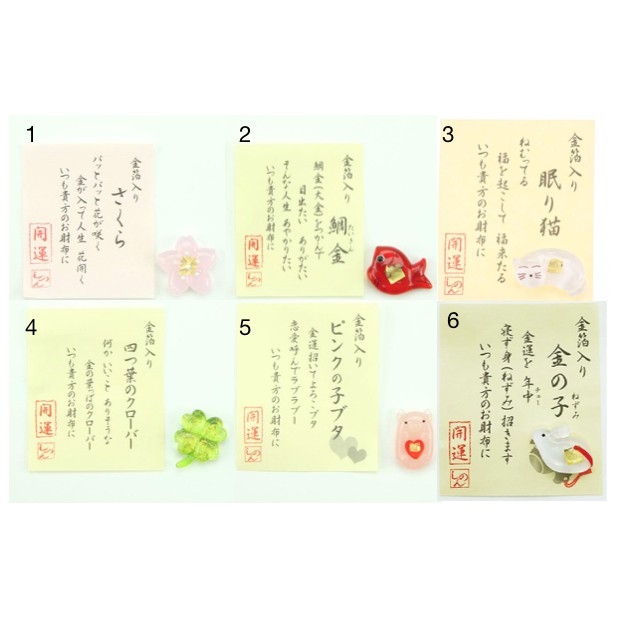 1
金箔入り
さくら
パッとパッと花が咲く
金が入って人生 花開く
いつも貴方のお財布に
開運
しのん
2
金箔入り
鯛金
たいきん
鯛金(大金)をつかんで
目出たい ありがたい
そんな人生 あやかりたい
いつも貴方のお財布に
開運
しのん
3
金箔入り
眠り猫
ねむってる
福を起こして 福来たる
いつも貴方のお財布に
開運
しのん
4
金箔入り
四つ葉のクローバー
何か いいこと ありそうな
金の葉っぱのクローバー
いつも貴方のお財布に
開運
しのん
5
金箔入り
ピンクの子ブタ
金運招いてよろこブタ
恋愛呼んでラブラブー
いつも貴方のお財布に
開運
しのん
6
金箔入り
金の子
ねずみ
金運を 年中
チュー
寝ず身(ねずみ)招きます
いつも貴方のお財布に
開運
しのん